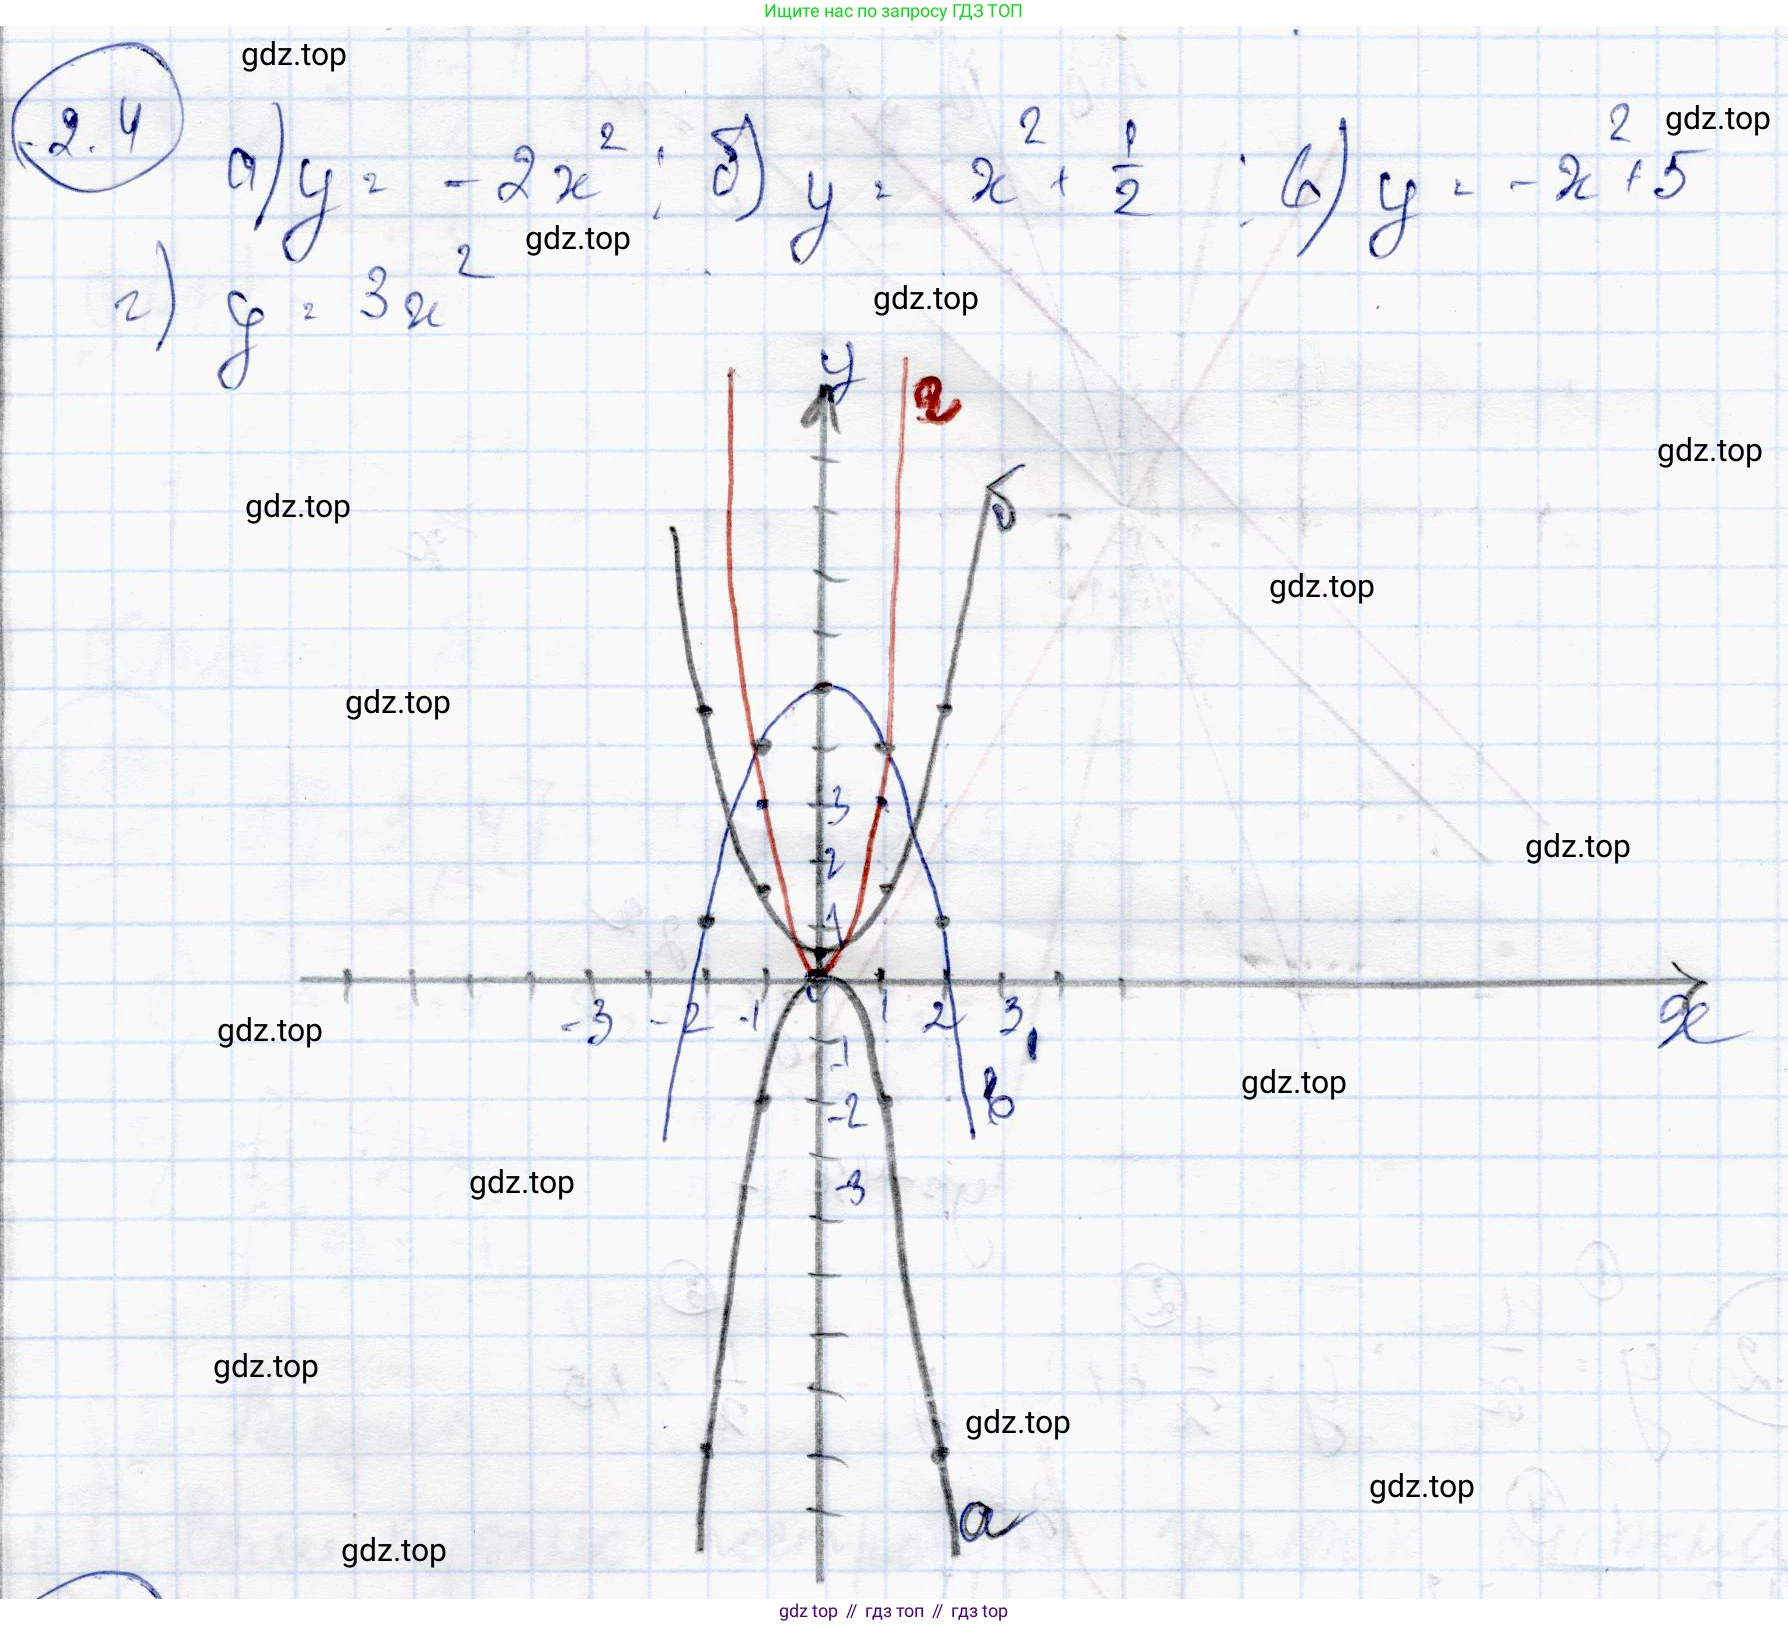 Ищите нас по запросу ГДЗ ТОП
gdz.top
2.4
а) y = -2x² ; б) y = x² + 1/2 ; в) y = -x² + 5
gdz.top
gdz.top
г) y = 3x²
gdz.top
y
г
gdz.top
б
gdz.top
gdz.top
gdz.top
3
gdz.top
2
1
0
-3 -2 -1 1 2 3 x
gdz.top
-1
gdz.top
в
-2
gdz.top
-3
gdz.top
gdz.top
gdz.top
а
gdz.top
gdz top // гдз топ // гдз top